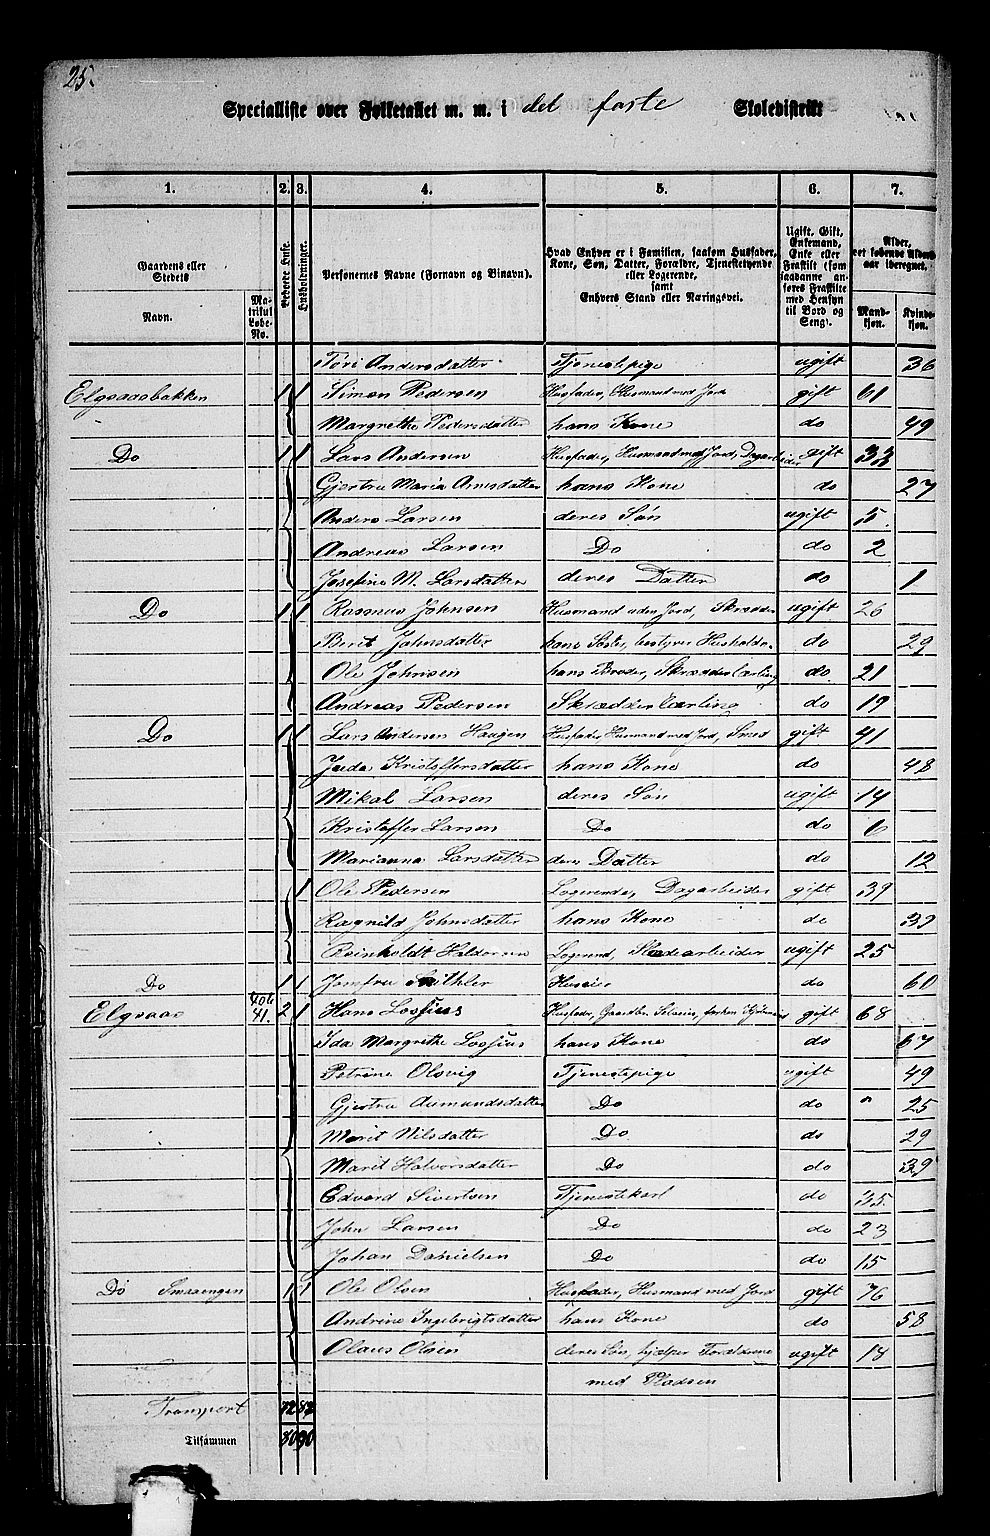 25.
Specialliste over Folketallet m. m. i det første Skoledistrikt
1. 2. 3. 4. 5. 6. 7.
Gaardens eller Stedets
Navn.
Matrikul Løbe-No.
Beboede Huse.
Husholdninger.
Personernes Navne (Fornavn og Binavn).
Hvad Enhver er i Familien, saasom Husfader, Kone, Søn, Datter, Forældre, Tjenestetyende eller Logerende, samt Enhvers Stand eller Næringsvei.
Ugift, Gift, Enkemand, Enke eller Fraskilt (som saadanne anføres Fraskilte med Hensyn til Bord og Seng).
Alder, det løbende Alders-aar iberegnet.
Mand-kjøn. Kvinde-kjøn.
Tori Andersdatter Tjenestepige ugift 36
Elgsaasbakken 1 1 Simon Pedersen Husfader, Husmand med Jord gift 61
Margrethe Pedersdatter hans Kone do 49
Do 1 1 Lars Andersen Husfader, Husmand med Jord, Dagarbeider gift 33
Gjertru Maria Arnesdatter hans Kone do 27
Anders Larsen deres Søn ugift 5
Andreas Larsen Do do 2
Josefine M. Larsdatter deres Datter do 1
Do 1 1 Rasmus Johnsen Husmand uden Jord, Skrædder ugift 26
Berit Johnsdatter hans Søster, bestyrer Husholdn. do 29
Ole Johnsen hans Broder, Skrædderlærling do 21
Andreas Pedersen Skrædderlærling do 19
Do 1 1 Lars Andersen Haugen Husfader, Husmand med Jord, Smed gift 41
Kristoffersdatter hans Kone do 48
Mikal Larsen deres Søn ugift 14
Kristoffer Larsen Do do 6
Marianna Larsdatter deres Datter do 12
1 Ole Pedersen Logerende, Dagarbeider gift 39
Ragnild Johnsdatter hans Kone do 39
Reinholdt Haldorsen Logerend, ugift 25
Do 1 1 Jomfru do 60
Elgsaas 40b 41. 2 1 Hans Lossius Husfader, Gaardbr. Selveier, gift 68
Ida Margrethe Lossius hans Kone do 67
Petrine Olsvig Tjenestepige ugift 49
Gjertru Aamundsdatter Do do " 25
Marit Nilsdatter Do do 29
Marit Halvorsdatter Do do 39
Edvard Sivertsen Tjenestekarl do 35
John Larsen Do do 23
Johan Danielsen Do do 15
Do Smaaengen 1 1 Ole Olsen Husfader, Husmand med Jord gift 76
Andrine Ingebrigtsdatter hans Kone do 58
Olaus Olsen deres Søn, hjælper Forældrene ugift 18
med Pladsen
Transport 72 82
Tilsammen 80 90